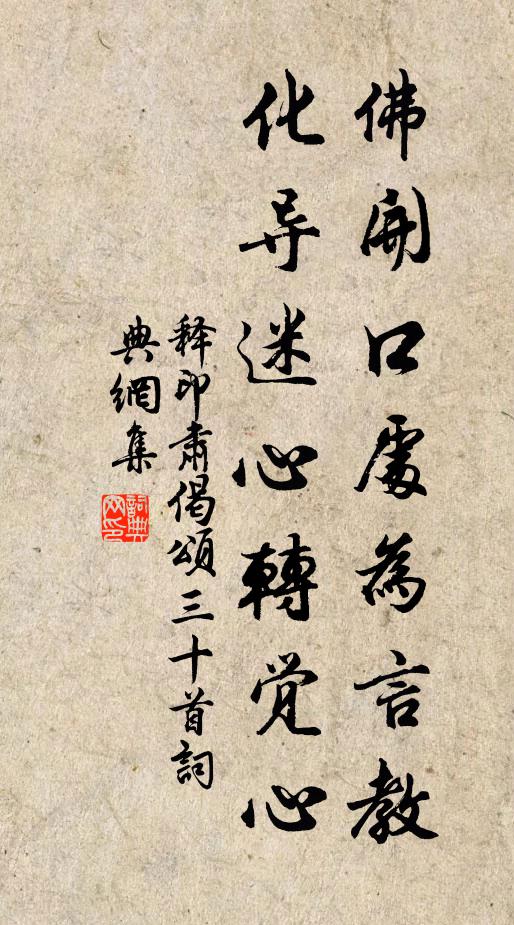 佛開口處為言教
化导迷心轉覚心
释印肅偈頌三十首詞
典網集
詞典网印